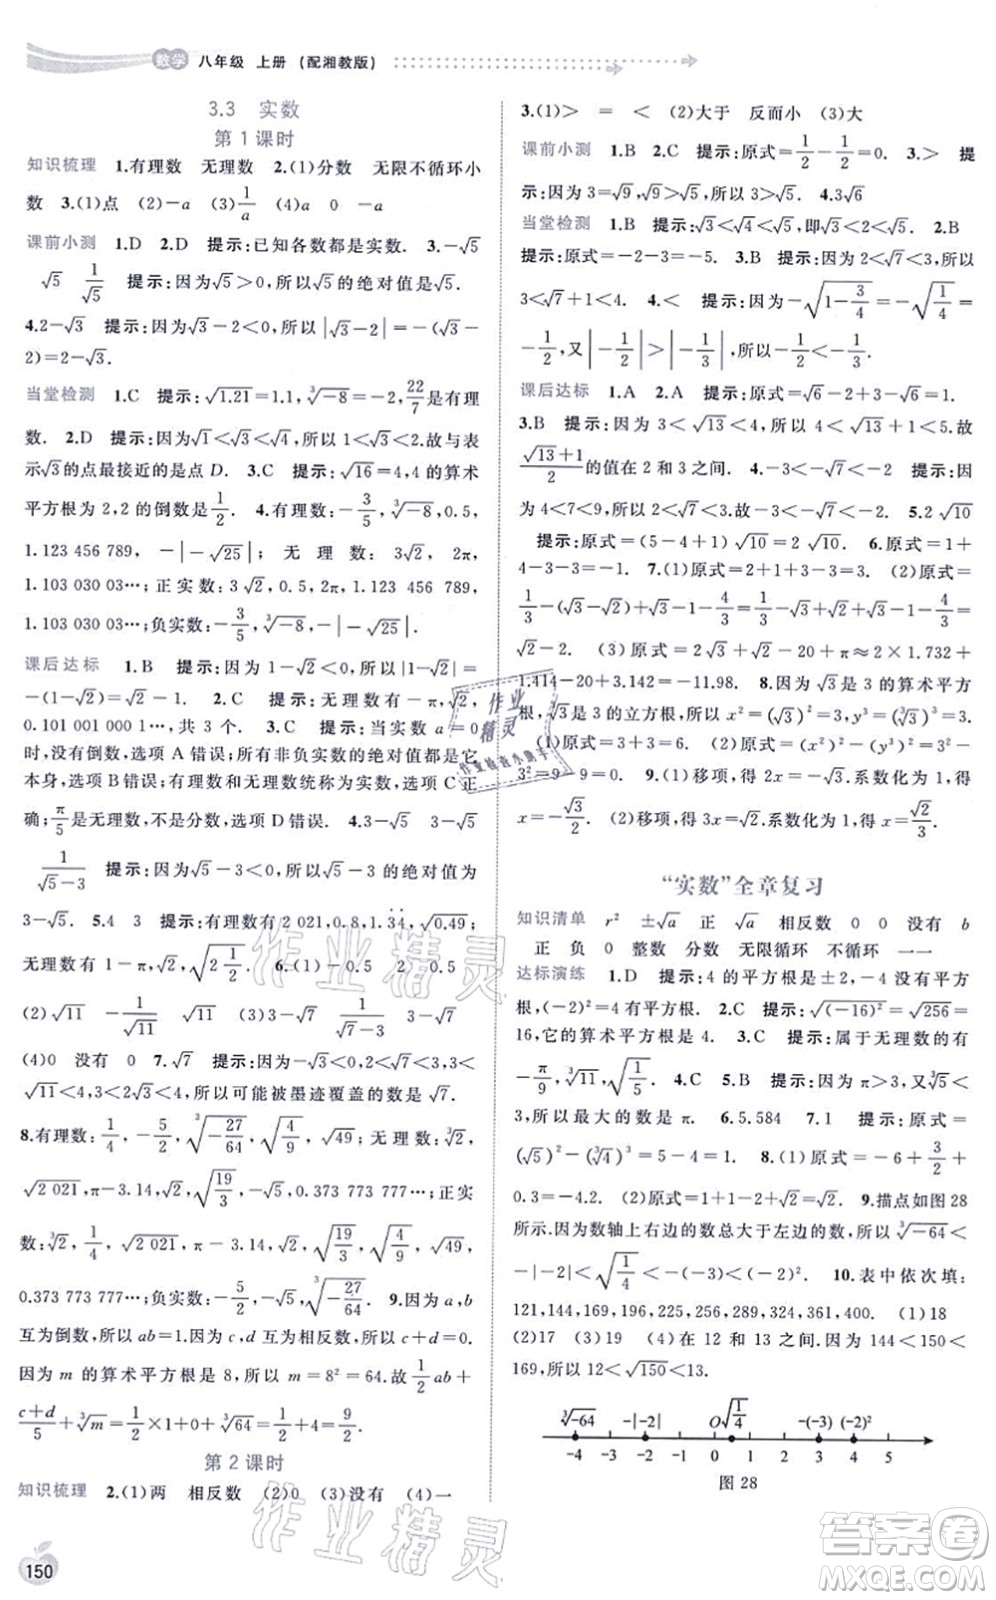 数学 八年级 上册 (配湘教版)
3.3 实数
第 1 课时
知识梳理 1.有理数 无理数 2.(1)分数 无限不循环小
数 3.(1)点 (2)-a (3)1/a (4)a 0 -a
课前小测 1.D 2.D 提示:已知各数都是实数. 3.-√5
√5 1/√5 提示:因为√5>0,所以√5的绝对值是√5.
4.2-√3 提示:因为√3-2<0,所以|√3-2|=-(√3-
2)=2-√3.
当堂检测 1.C 提示:√1.21=1.1,∛-8=-2,22/7是有理
数. 2.D 提示:√1<√3<√4,所以1<√3<2.故与表
示√3的点最接近的是点 D. 3.C 提示:√16=4,4的算术
平方根为2,2的倒数是1/2. 4.有理数:-3/5,∛-8,0.5,
1.123 456 789,-|-√25|;无理数:3√2,2π,
1.103 030 03…;正实数:3√2,0.5,2π,1.123 456 789,
1.103 030 03…;负实数:-3/5,∛-8,-|-√25|.
课后达标 1.B 提示:因为1-√2<0,所以|1-√2|=
-(1-√2)=√2-1. 2.C 提示:无理数有-π,√2,
0.101 001 000 1…,共 3 个. 3.C 提示:当实数 a=0
时,没有倒数,选项 A 错误;所有非负实数的绝对值是它
本身,选项 B 错误;有理数和无理数统称为实数,选项 C 正
确;π/5是无理数,不是分数,选项 D 错误. 4.3-√5 3-√5
1/(√5-3) 提示:因为√5-3<0,所以√5-3的绝对值为
3-√5. 5.4 3 提示:有理数有2 021,0.8,1.3̇4̇,√0.49;
无理数有1/3π,√2,√(2 1/4). 6.(1)-0.5 2 0.5
(2)√11 -1/√11 √11 (3)3-√7 1/(√7-3) 3-√7
(4)0 没有 0 7.√7 提示:因为-√3<0,2<√7<3,3<
√11<4,所以可能被墨迹覆盖的数是√7.
8.有理数:1/4,-5/2,∛(-27/64),√(4/9),√49;无理数:∛2,
√2 021,π-3.14,-√2/2,√(19/3),0.373 773 777…;正实
数:∛2,1/4,√2 021,π-3.14,√(19/3),√(4/9),√49,
0.373 773 777…;负实数:-√2/2,-5/2,∛(-27/64). 9.因为 a,b
互为倒数,所以 ab=1.因为 c,d 互为相反数,所以 c+d=0.
因为 m 的算术平方根是 8,所以 m=8²=64.故1/2ab+
(c+d)/5+∛m=1/2×1+0+∛64=1/2+4=9/2.
第 2 课时
知识梳理 2.(1)两 相反数 (2)0 (3)没有 (4)一
150
3.(1)> = < (2)大于 反而小 (3)大
课前小测 1.B 2.C 提示:原式=1/2-1/2=0. 3.> 提
示:因为3=√9,√9>√5,所以3>√5. 4.3√6
当堂检测 1.B 提示:√3<√4<√5,即√3<2<√5. 2.B
提示:原式=-2-3=-5. 3.B 提示:因为2<√7<3,所以
3<√7+1<4. 4.< 提示:因为-√(1-3/4)=-√(1/4)=
-1/2,又|-1/2|>|-1/3|,所以-1/2<-1/3.
课后达标 1.A 2.A 提示:原式=√6-2√6=-√6.
3.B 提示:因为3<√13<4,所以4<√13+1<5.故
(√13+1)/2的值在2和3之间. 4.-3<-√7<-2 提示:因
为4<7<9,所以2<√7<3.故-3<-√7<-2. 5.2√10
提示:原式=(5-4+1)√10=2√10. 6.原式=1+
4-3-3=-1. 7.(1)原式=2-3=-1. (2)原式=
1/3-√3-(√2-√3)+4/3-1=1/3-√3-√2+√3+4/3-1=
√2-2. (3)原式=2√3+√2-20+π≈2×1.732+
1.414-20+3.142≈-11.98. 8.因为√3是3的算术平方
根,∛3是3的立方根,所以x²=(√3)²=3,y³=(∛3)³=3.
(1)原式=3+3=6. (2)原式=(x²)²-(y³)²=
3²-3²=9-9=0. 9.(1)移项,得2x=√3.系数化为1,得
x=√3/2. (2)移项,得3x=√2.系数化为1,得x=√2/3.
“实数”全章复习
知识清单 r² ±√a 正 √a 相反数 0 0 没有 b
正 负 0 整数 分数 无限循环 不循环 一一
达标演练 1.D 提示:4的平方根是±2,-4没有平方
根,(-2)²=4有平方根. 2.C 提示:√(-16)²=√256=
16,它的算术平方根是4. 3.C 提示:属于无理数的有
-π/9,∛11,√(1/5). 4.C 5.B 提示:因为π>3,又∛5<
3,所以最大的数是π. 6.5.584 7.1 提示:原式=
(-√5)²-(∛4)³=5-4=1. 8.(1)原式=-6+3/2+
0.3=-4.2. (2)原式=1+1-√2=2-√2. 9.描点如图 28
所示.因为数轴上右边的数总大于左边的数,所以∛-64<
-|-2|<√(1/4)<-(-3)<(-2)². 10.表中依次填:
121,144,169,196,225,256,289,324,361,400. (1)18
(2)17 (3)19 (4)在 12 和 13 之间.因为 144<150<
169,所以12<√150<13.
∛-64 -|-2| O √(1/4) -(-3) (-2)²
-4 -3 -2 -1 0 1 2 3 4 5
图 28
作业精灵
作业精灵
作业精灵
答案圈
MXQE.COM